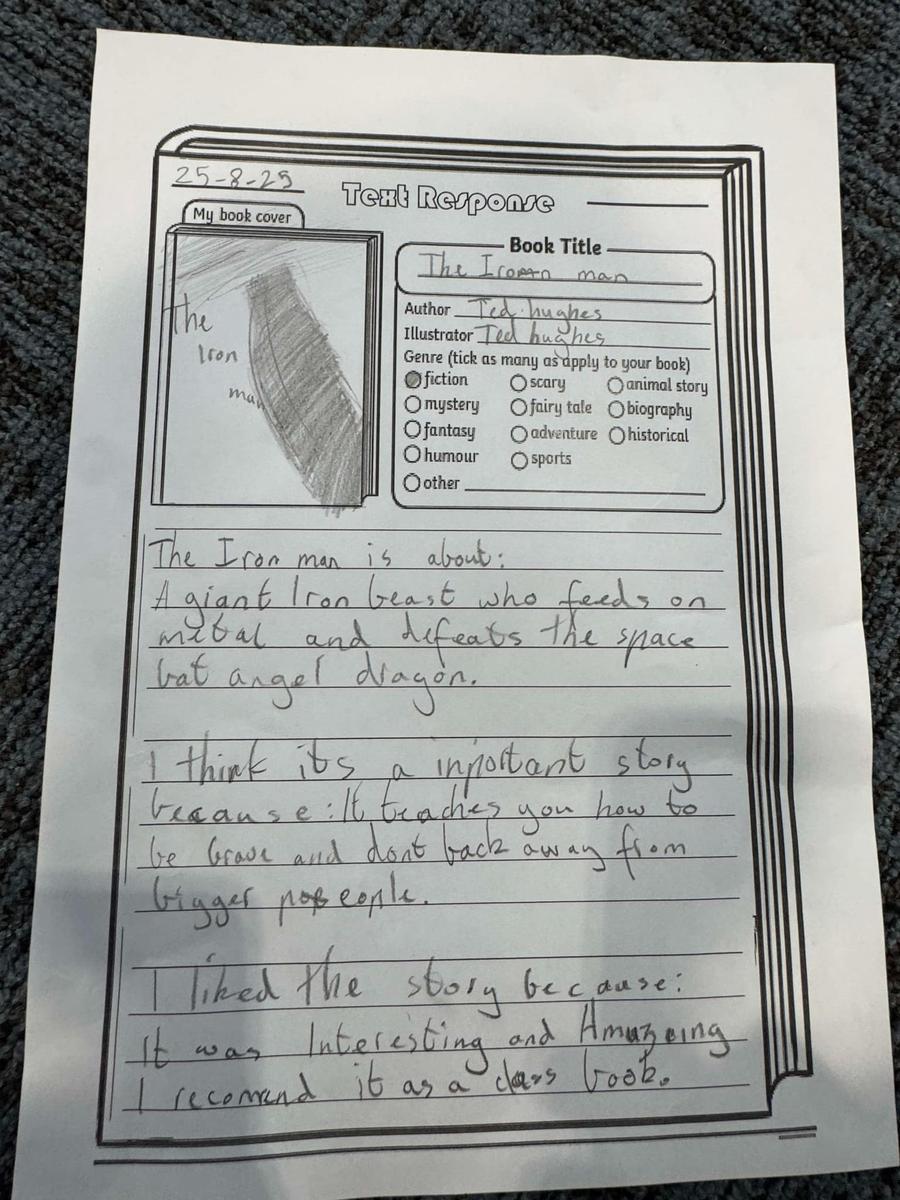 25-8-25
Text Response
My book cover
The
Iron
man
Book Title
The Iroman man
Author Ted hughes
Illustrator Ted hughes
Genre (tick as many as apply to your book)
fiction scary animal story
mystery fairy tale biography
fantasy adventure historical
humour sports
other
The Iron man is about:
A giant Iron beast who feeds on
metal and defeats the space
bat angel dragon.
I think its a inportant story
because: It teaches you how to
be brave and dont back away from
bigger people.
I liked the story because:
It was Interesting and Amazeing
I recomend it as a class book.